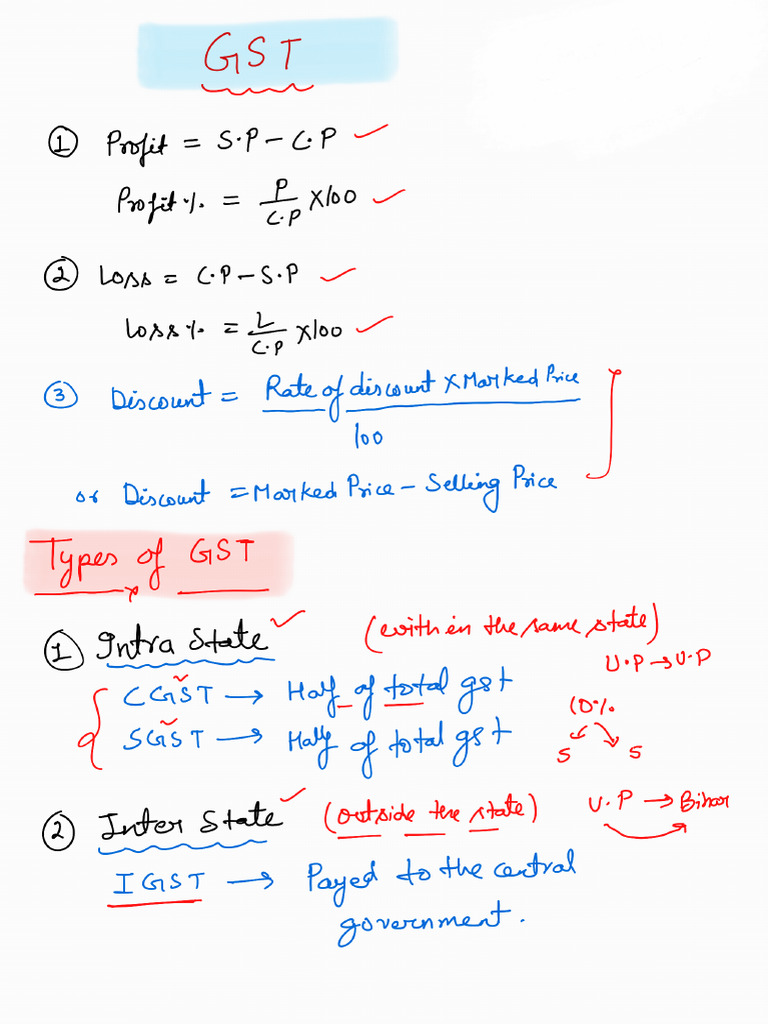 GST
① Profit = S.P - C.P
Profit % = P / C.P × 100
② Loss = C.P - S.P
Loss % = L / C.P × 100
③ Discount = Rate of discount × Marked Price / 100
or Discount = Marked Price - Selling Price
Types of GST
① Intra State (with in the same state)
U.P → U.P
CGST → Half of total gst
10%
SGST → Half of total gst
5 5
② Inter State (outside the state) U.P → Bihar
IGST → Payed to the central
government.